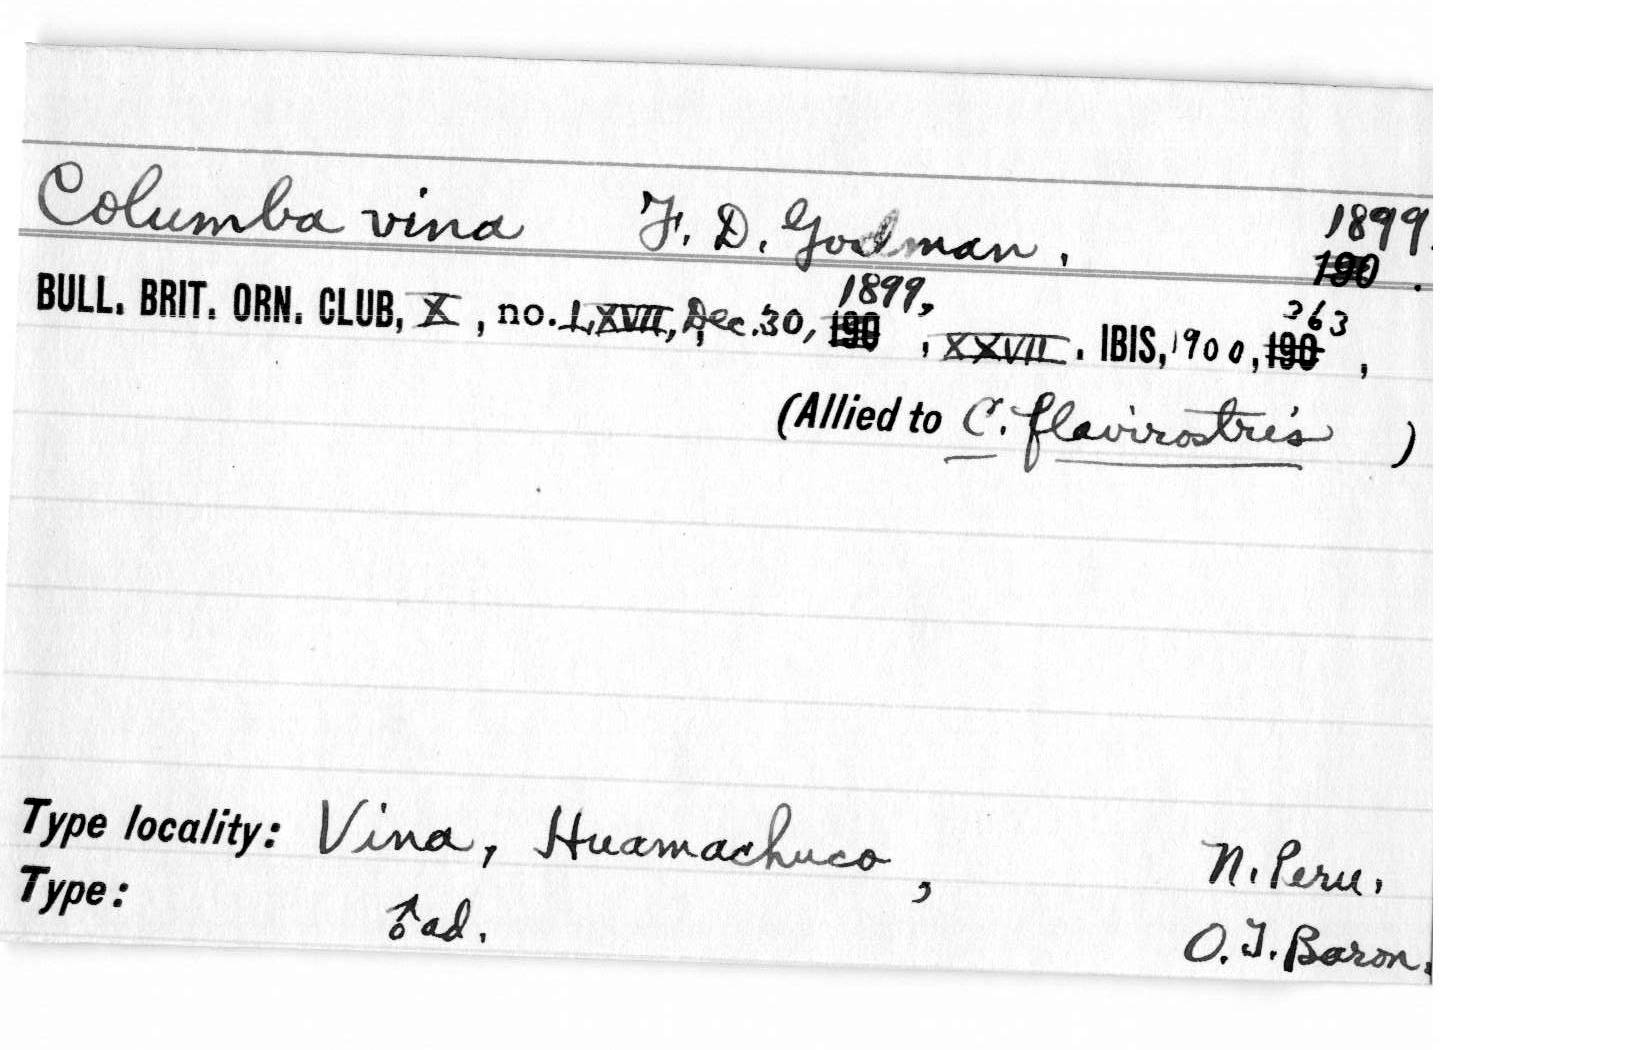 Columba vina F. D. Godman. 1899.
190 .
BULL. BRIT. ORN. CLUB, X, no. LXVII, Dec. 30, 190 1899, , XXVII. IBIS, 1900, 190 363 ,
(Allied to C. flavirostris )
Type locality: Vina, Huamachuco, N. Peru.
Type: ♂ ad. O. T. Baron.